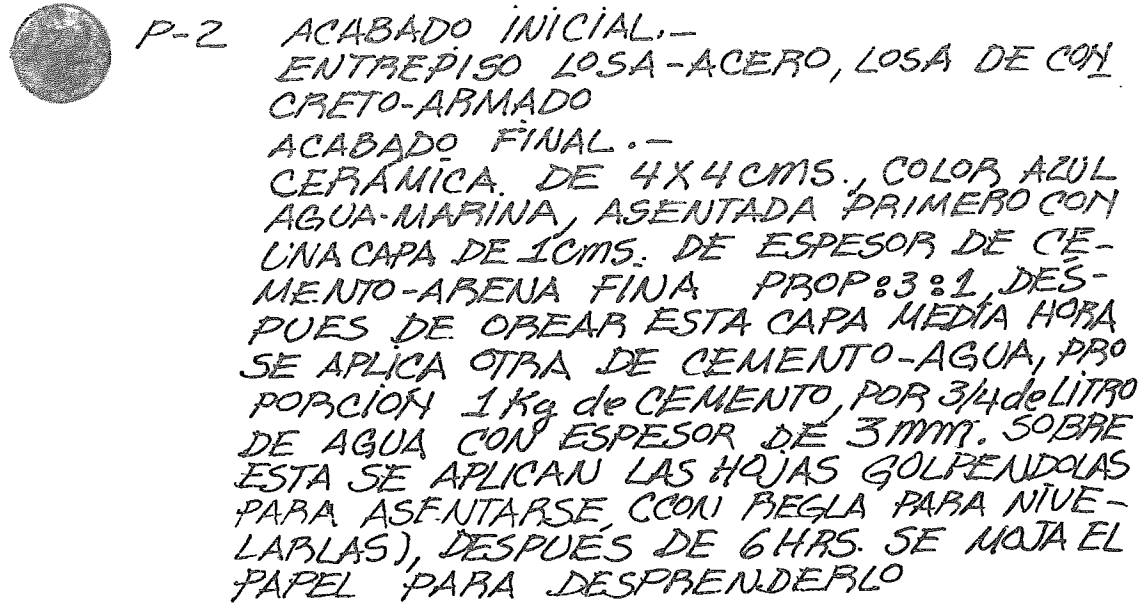 P-2 ACABADO INICIAL.-
ENTREPISO LOSA-ACERO, LOSA DE CON
CRETO-ARMADO
ACABADO FINAL.-
CERÁMICA. DE 4X4 CMS., COLOR AZUL
AGUA-MARINA, ASENTADA PRIMERO CON
UNA CAPA DE 1CMS. DE ESPESOR DE CE-
MENTO-ARENA FINA PROP:3:1, DES-
PUES DE OREAR ESTA CAPA MEDIA HORA
SE APLICA OTRA DE CEMENTO-AGUA, PRO
PORCIÓN 1 Kg de CEMENTO, POR 3/4 de LITRO
DE AGUA CON ESPESOR DE 3 mm. SOBRE
ESTA SE APLICAN LAS HOJAS GOLPENDOLAS
PARA ASENTARSE, CCON REGLA PARA NIVE-
LARLAS), DESPUÉS DE 6 HRS. SE MOJA EL
PAPEL PARA DESPRENDERLO